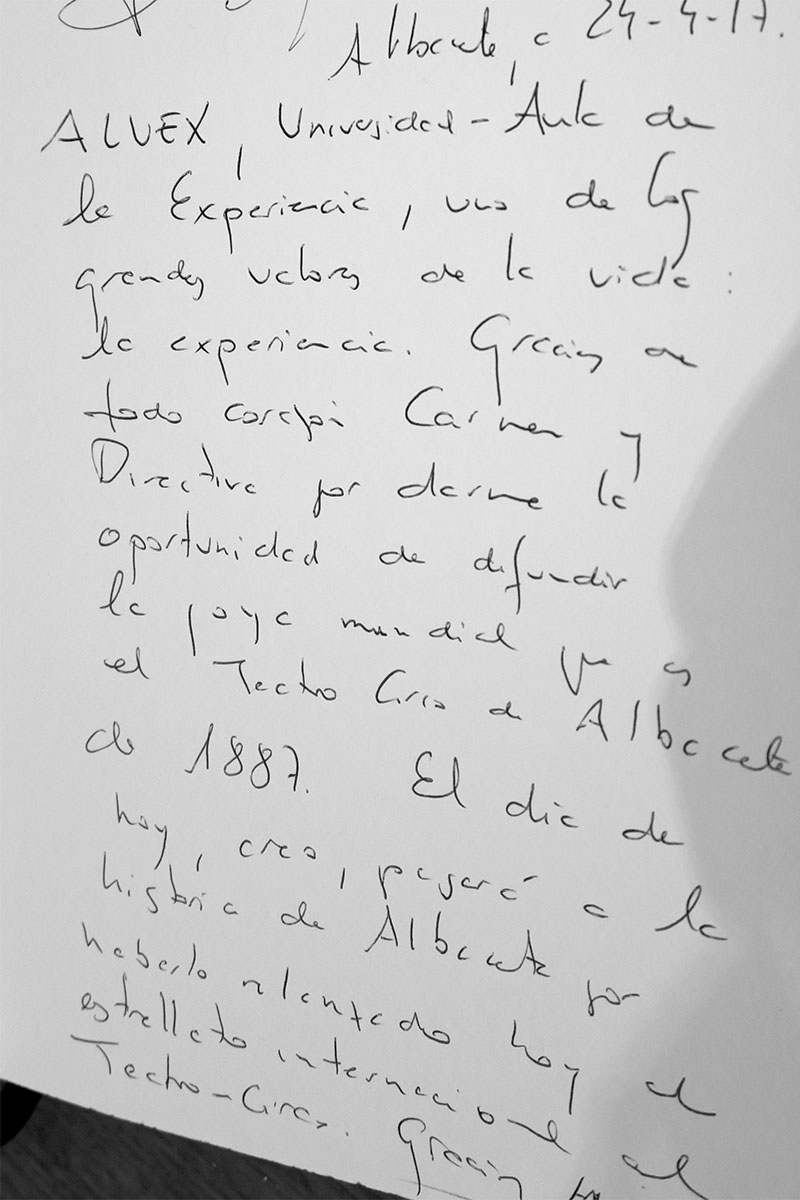 Albacete, a 24-4-17.
ALUEX, Universidad-Aula de
la Experiencia, uno de los
grandes valores de la vida:
la experiencia. Gracias de
todo corazón Carmen y
Directiva por darme la
oportunidad de difundir
la joya mundial que es
el Teatro Circo de Albacete
de 1887. El día de
hoy, creo, pasará a la
historia de Albacete por
haberlo relanzado hoy al
estrellato internacional al
Teatro-Circo. Gracias